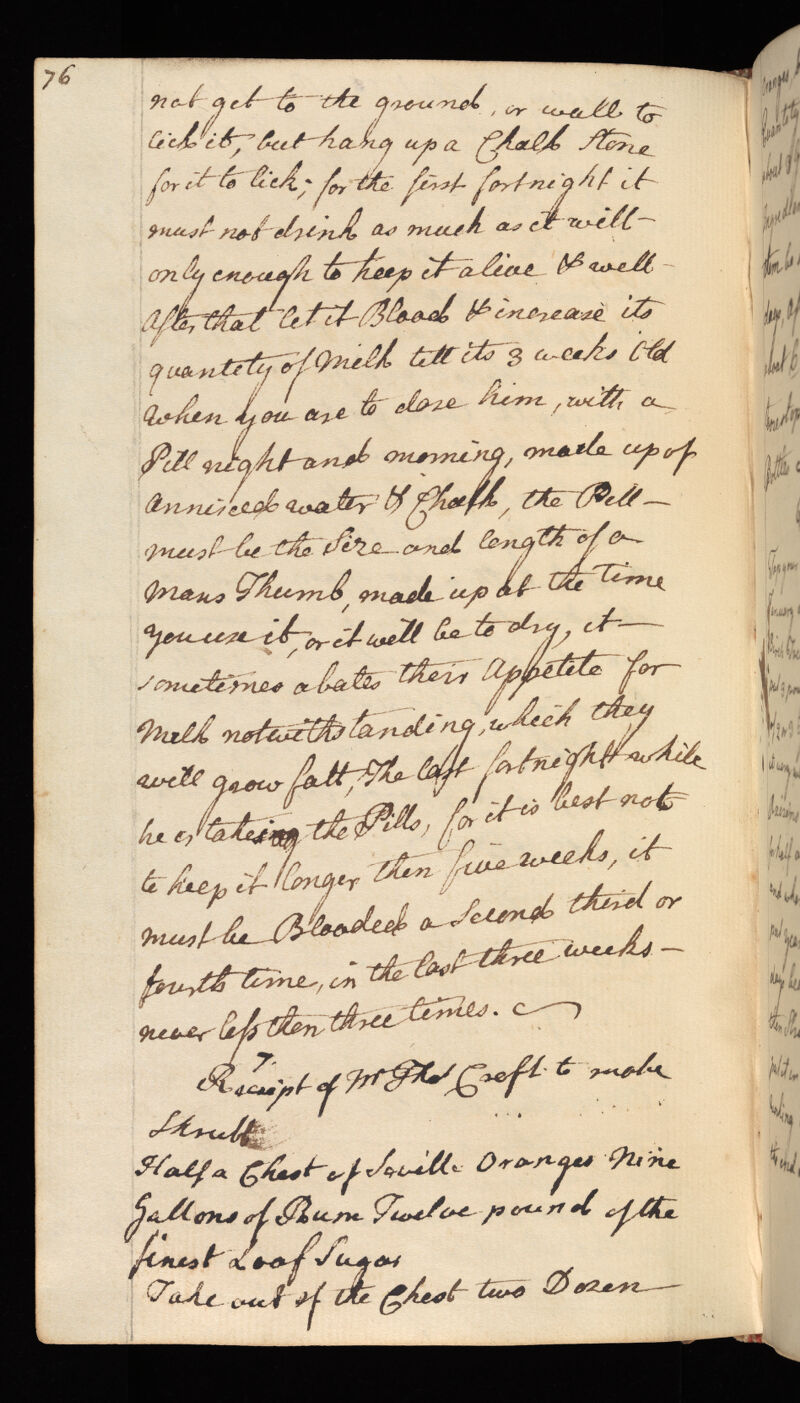 76
not get to the ground, or wall to
lick it, but hang up a Chalk Stone
for it to lick; for the first fortnight it
must not drink as much as it will
only enough to keep it alive & well
After that let it Blood & increase its
quantety of Milk till its 3 weeks Old
When you are to dose him, with a
Pill night and morning, made up of
Anniseed water & Chalk, the Pill
must be the Size and length of a
Mans Thumb, made up at the time
you use it, or it will be to dry, it
sometimes abates their Appetite for
Milk notwithstanding, which they
will grow fatt, The last fortnight while
he is taking the Pills, for it is best not
to keep it longer then five weeks, it
must be Blooded a Second third or
fourth time, in the last three weeks
never less then three times.
Receipt of Mr Thos Croft to make
Shrubb
Half a Chest of Seville Oranges Nine
Gallons of Rum Twelve pound of the
finest Loaf Sugar
Take out of the Chest two Dozen